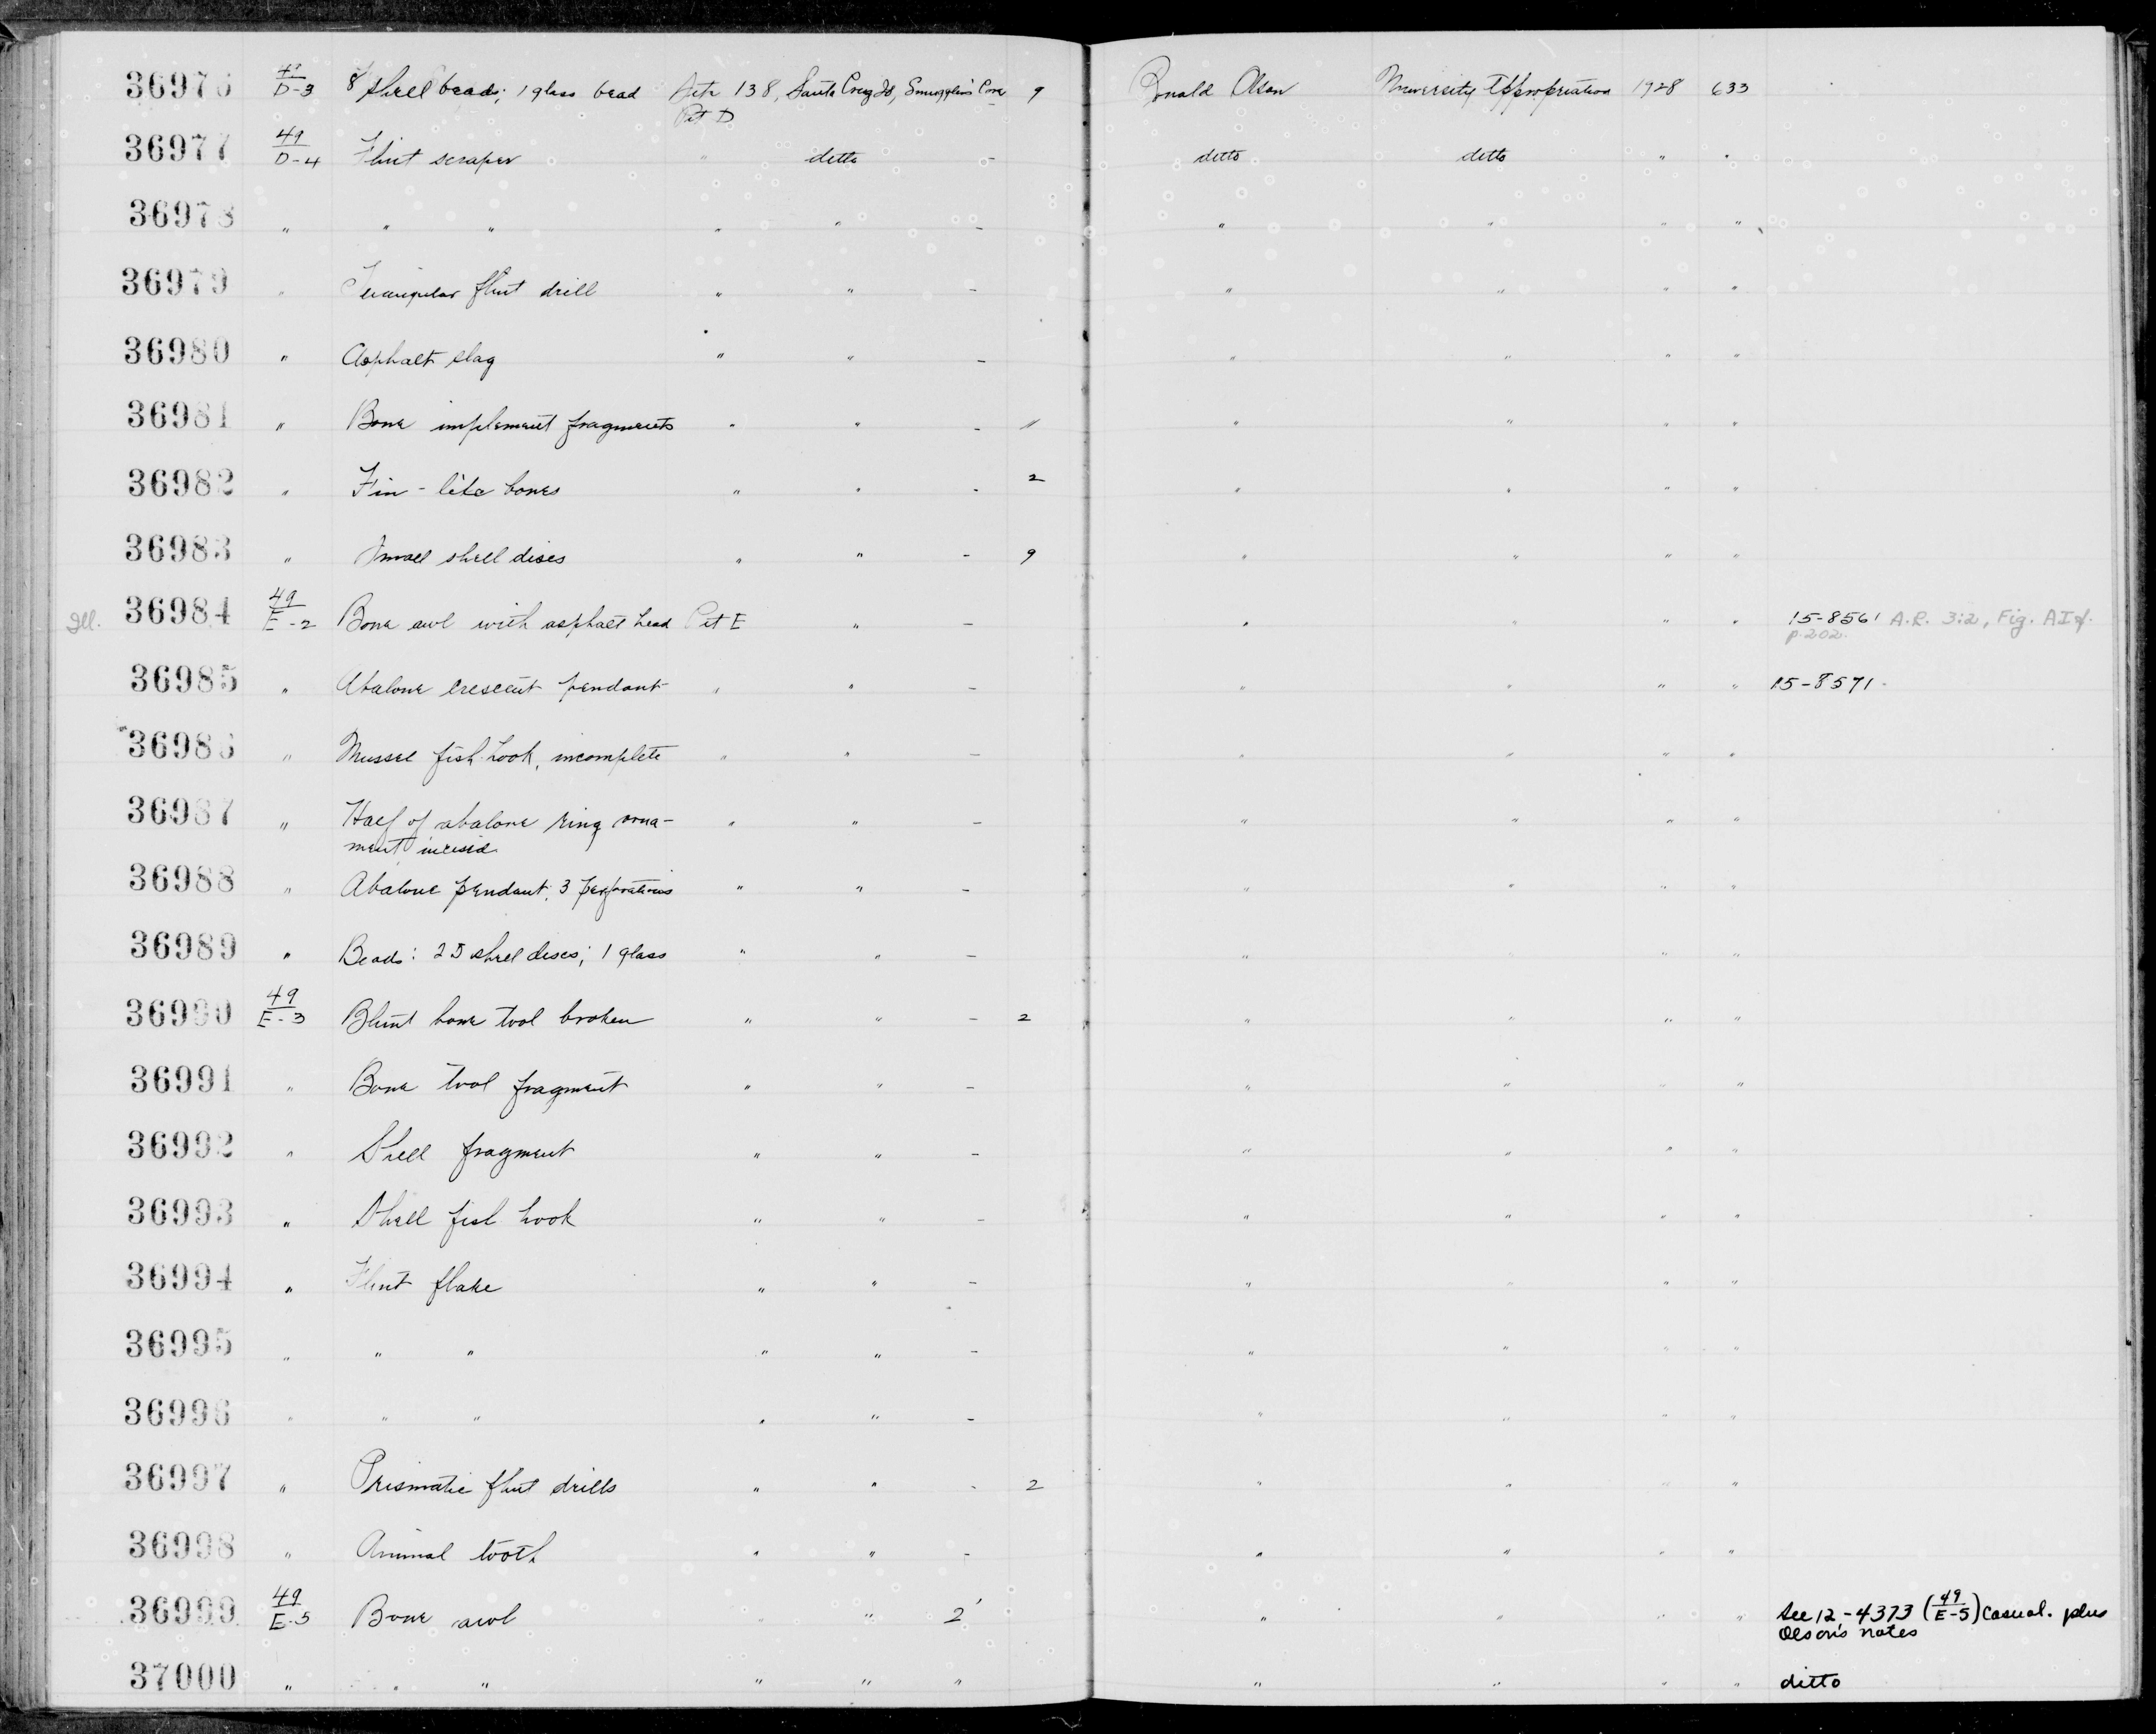 36976 49/D-3 8 shell beads; 1 glass bead Site 138, Santa Cruz Id, Smuggler's Cove 9 Ronald Olson University Appropriation 1928 633
Pit D
36977 49/D-4 Flint scraper " ditto - ditto ditto " "
36978 " " " " " - " " " "
36979 " Triangular flint drill " " - " " " "
36980 " Asphalt slag " " - " " " "
36981 " Bone implement fragments " " - 11 " " " "
36982 " Fin-like bones " " - 2 " " " "
36983 " Small shell discs " " - 9 " " " "
Ill. 36984 49/E-2 Bone awl with asphalt head Pit E " - " " " " 15-8561 A.R. 3:2, Fig. AIf.
p.202.
36985 " Abalone crescent pendant " " - " " " " 15-8571
36986 " Mussel fish hook, incomplete " " - " " " "
36987 " Half of abalone ring orna- " " - " " " "
ment incised
36988 " Abalone pendant, 3 perforations " " - " " " "
36989 " Beads: 25 shell discs; 1 glass " " - " " " "
36990 49/E-3 Blunt bone tool broken " " - 2 " " " "
36991 " Bone tool fragment " " - " " " "
36992 " Shell fragment " " - " " " "
36993 " Shell fish hook " " - " " " "
36994 " Flint flake " " - " " " "
36995 " " " " " - " " " "
36996 " " " " " - " " " "
36997 " Prismatic flint drills " " - 2 " " " "
36998 " Animal tooth " " - " " " "
36999 49/E-5 Bone awl " " 2' " " " " See 12-4373 (49/E-5) casual. plus
Olson's notes
37000 " " " " " " " " " " ditto